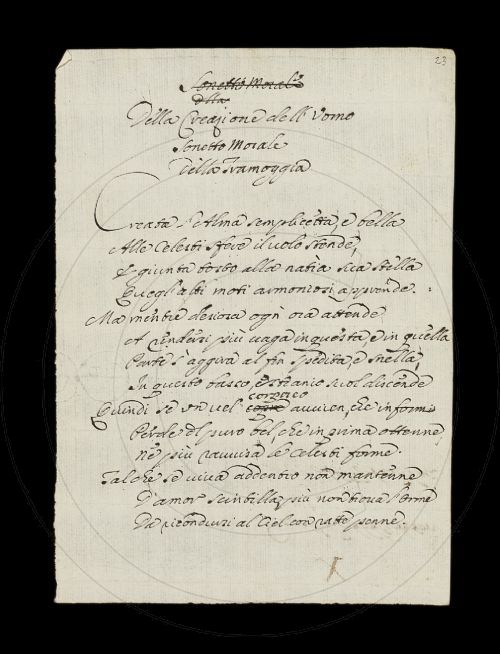 23
Sonetto Morale
della
Della Creazione dell' Uomo
Sonetto Morale
Della Tramoggia
Creata l'Alma semplicetta, e bella
Alle Celesti sfere il volo stende,
E giunta tosto alla natìa sua stella
Quegl'alti moti armoniosi apprende.
Ma mentre desiosa ogn'ora attende
A rendersi più vaga in questa, e in quella
Parte s'aggira al fin spedita, e snella,
In questo basso, e stranio suol discende
Quindi se un vel corporeo avvien, che informi
Perde il puro bel, che in prima ottenne,
Ne più ravvisa le Celesti forme.
Talche se viva addentro non mantenne
D'amor scintilla, più non trova l'orme
Da ricondursi al Ciel con ratte penne.